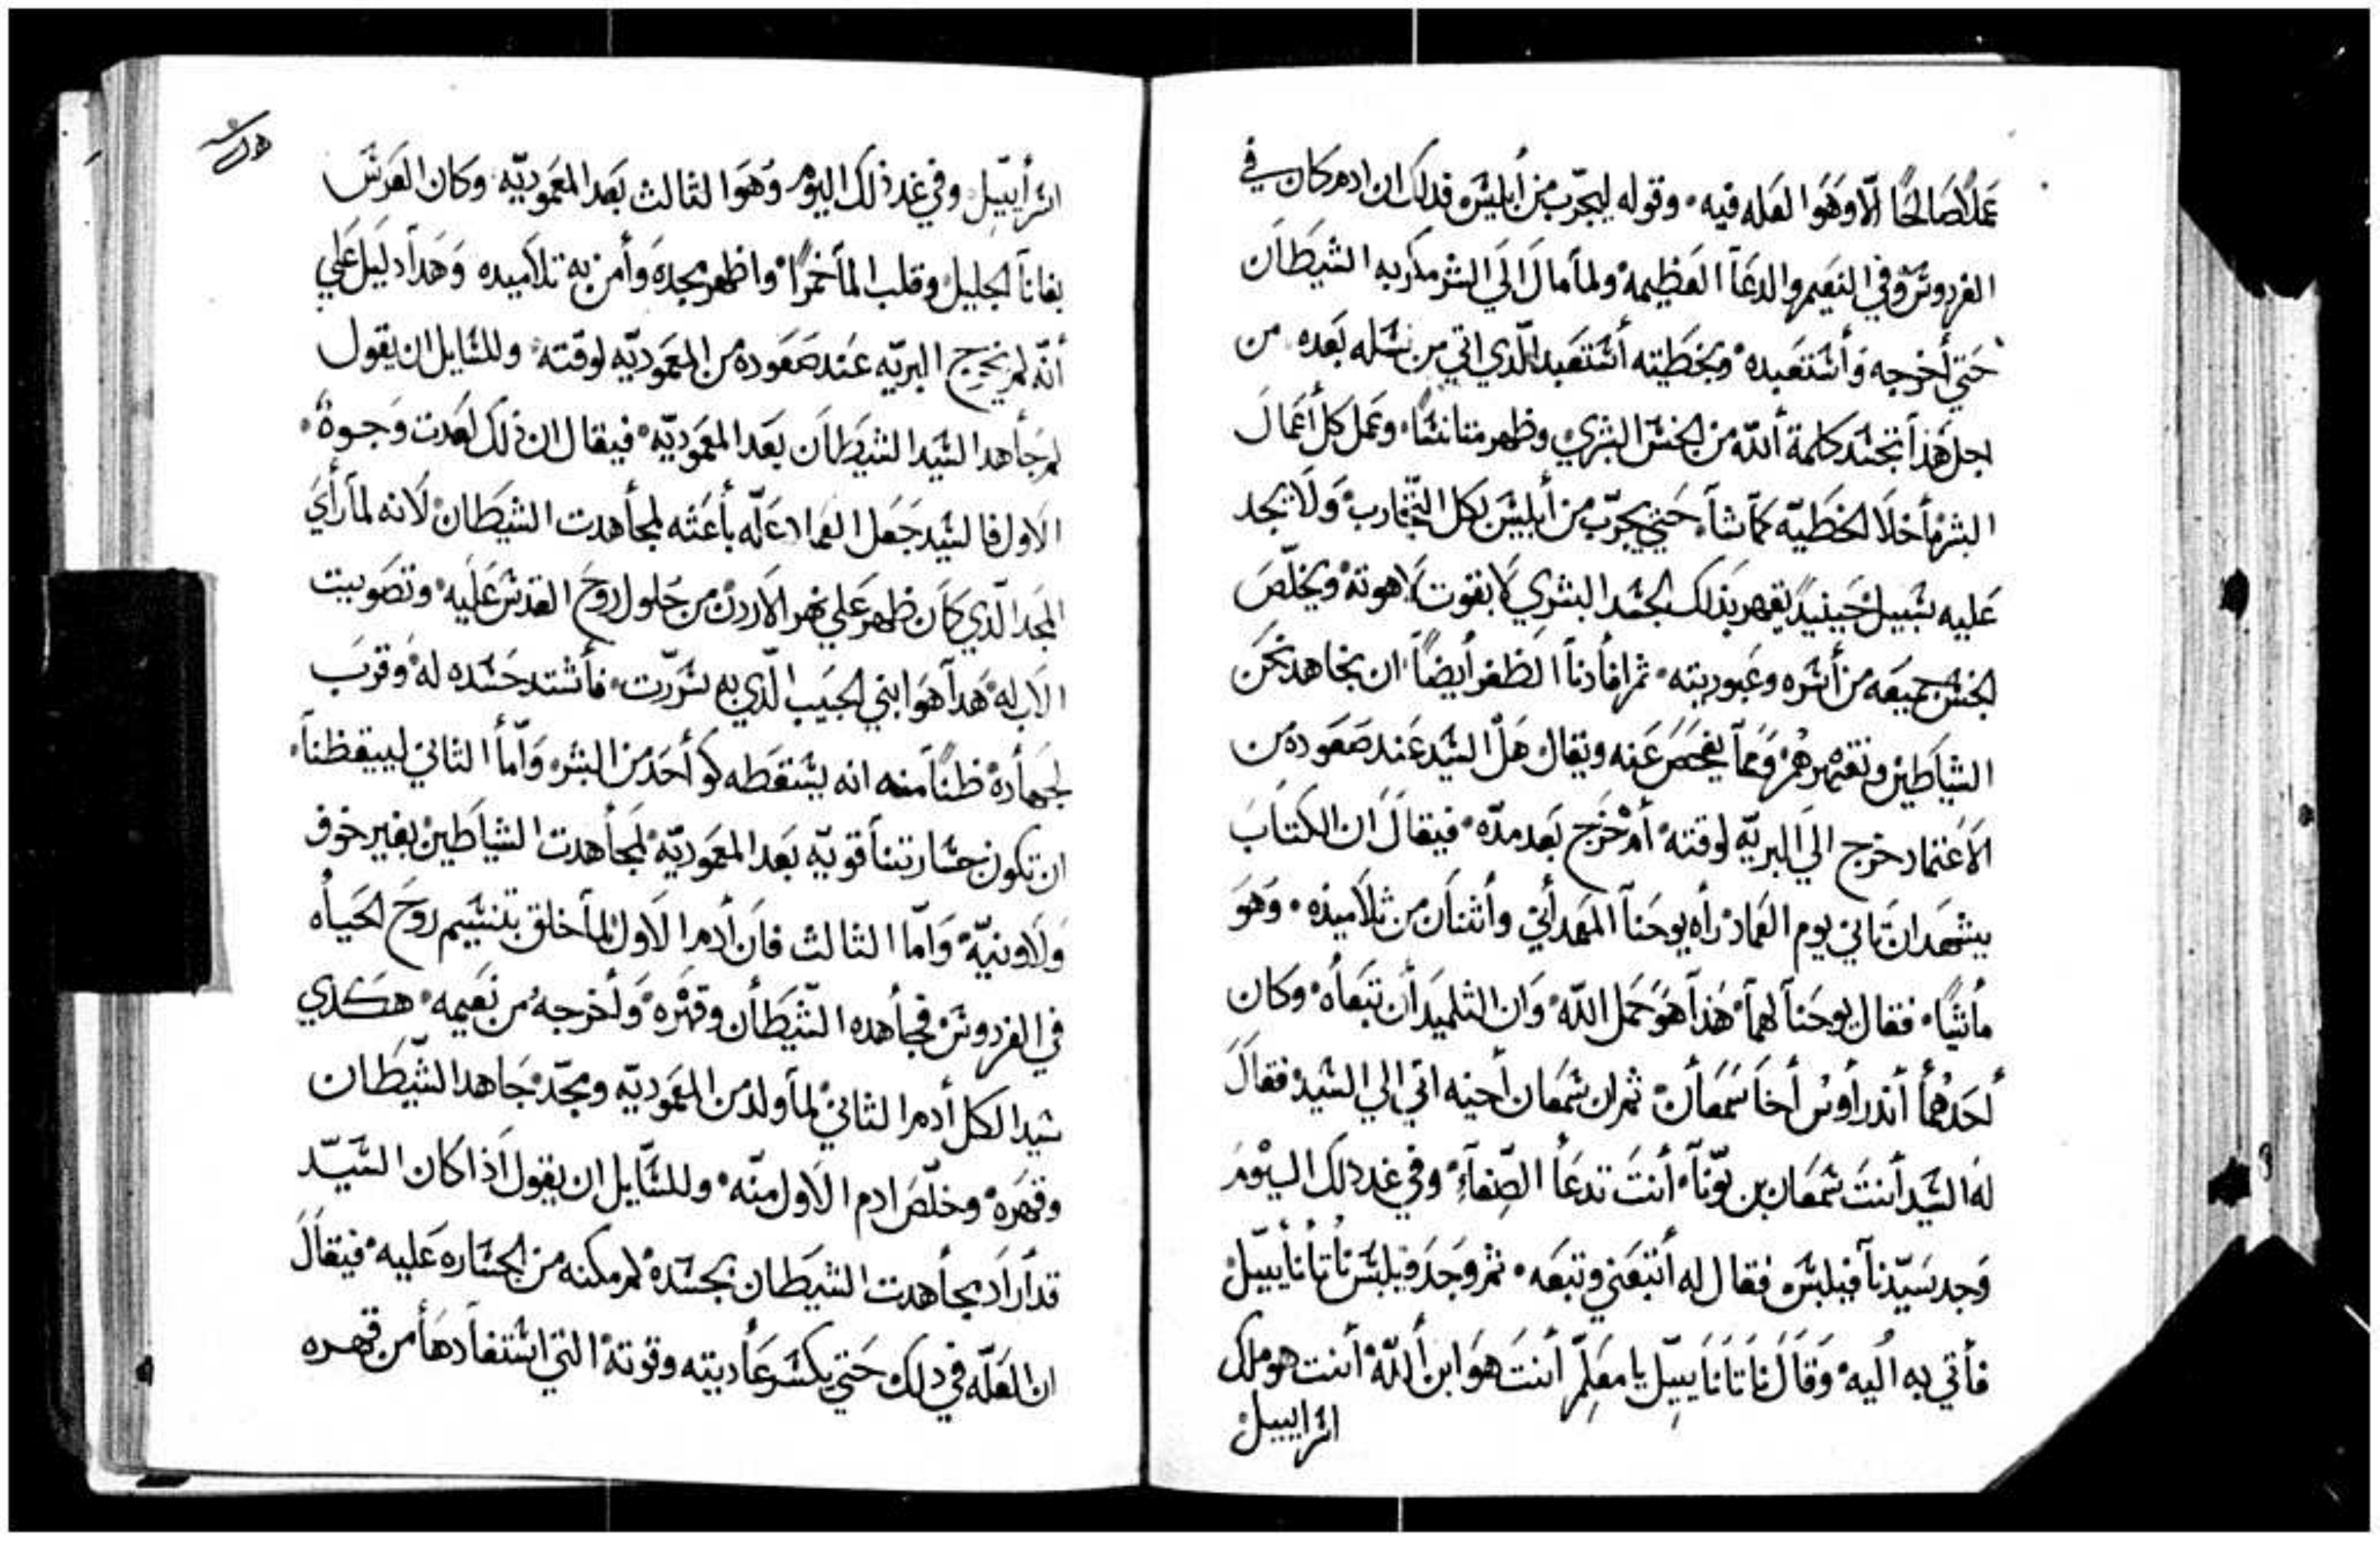 عملاً صالحًا الّا وهوا لعله فيه۰ وقوله ليجرّب من أبليس فدلك ان ادم كان في
الفردوس وفي النعيم والدعآ العظيمه ولمآ مال الي الشر مكر به الشيطان
حتي أخرجه وأستعبده وبخطيته أستعبد الّذي اتي من نسله بعده من
اجل هذآ تجسّد كلمة أللّه من الجنس البشري وظهر متانسًا وعمل كل أعمال
البشر مأ خلا الخطيّه كمآ شآ حتي يجرّب من أبليس بكل التّجارب ولا يجد
عليه سبيل حينيدٍ يقهر بذلك الجسد البشري لا بقوت لاهوته ويخلّص
الجنس جميعه من أسره وعبوديته۰ ثم افأدنآ الظفر أيضاً ان نجاهد نحن
الشياطين ونقهرهم وممآ يفحص عنه ويقال هل السّيد عند صعوده من
الاعتماد خرج الي البريّه لوقته أم خرج بعد مدّه۰ فيقال ان الكتاب
يشهد ان ثاني يوم العماد رأه يوحنآ المعمدأني وأثنان من تلاميذه۰ وهو
مأشيًا۰ فقال يوحنآ لهمآ هذآ هو حمل اللّه وان التلميدأن تبعأه۰ وكان
أحدهمأ أندرأوس أخا سمعأن ثم ان سمعان أخيه اتي الي السّيد فقال
له السّيد أنت سمعان بن يوّنآ أنت تدعأ الصّفآء وفي غد دلك اليوم
وجد سيّدنآ فيلبس فقال له أتبعني وتبعه۰ ثم وجد فيلبس نأثأنأييّل
فأتي به أليه وقال ناثانايبيّل يا معلّم أنت هو ابن أللّه أنت هو ملك
اسراييل
اسرأييّل وفي غد ذلك اليوم وهوا لثالث بعد المعموديّه۰ وكان العرس
بقانآ الجليل وقلب المآ خمرًا واظهر مجده وأمن به تلاميده وهدآ دليل علي
أنّه لم يخرج البريّه عند صعوده من المعموديّه لوقته۰ وللسّايل ان يقول
لم جأهد السّيد الشيطان بعد المعموديّه۰ فيقال ان ذلك لعدت وجوة۰
الاول فالسّيد جعل العماد علّه بأعثه لمجأهدت الشيطان لانه لمآ رأي
المجد الّذي كان ظهر علي نهر الاردن من حلول روح القدس عليه وتصوييت
الاب له هدآ هوا بني الحبيب الّذي به سرّرت فأشتد حسده له وقرب
لجهأده ظنًا منه انه يسقطه كو أحد من البشر وأمّأ الثاني ليقظنآ
ان تكون جسارتنآ قويّه بعد المعموديّه لمجأهدت الشياطين بغير خوف
ولا ونيّه وامّا الثالث فان أدم الاول لمأ خلق بتنسيم روح الحيأه
في الفردوس فجأهده الشّيطأن وقهره وأخرجه من نعيمه۰ هكذي
سيد الكل أدم الثاني لمأ ولد من المعموديّه ومجّد جاهد الشّيطان
وقهره وخلّص ادم الاول منّه۰ وللسّايل ان يقول اذا كان السّيّد
قد أرأد بجأهدت الشيطان بجسده لم مكنه من الجساره عليه فيقال
ان العلّه في دلك حتي يكسر عأديته وقوته التي استفأدهأ من قهره